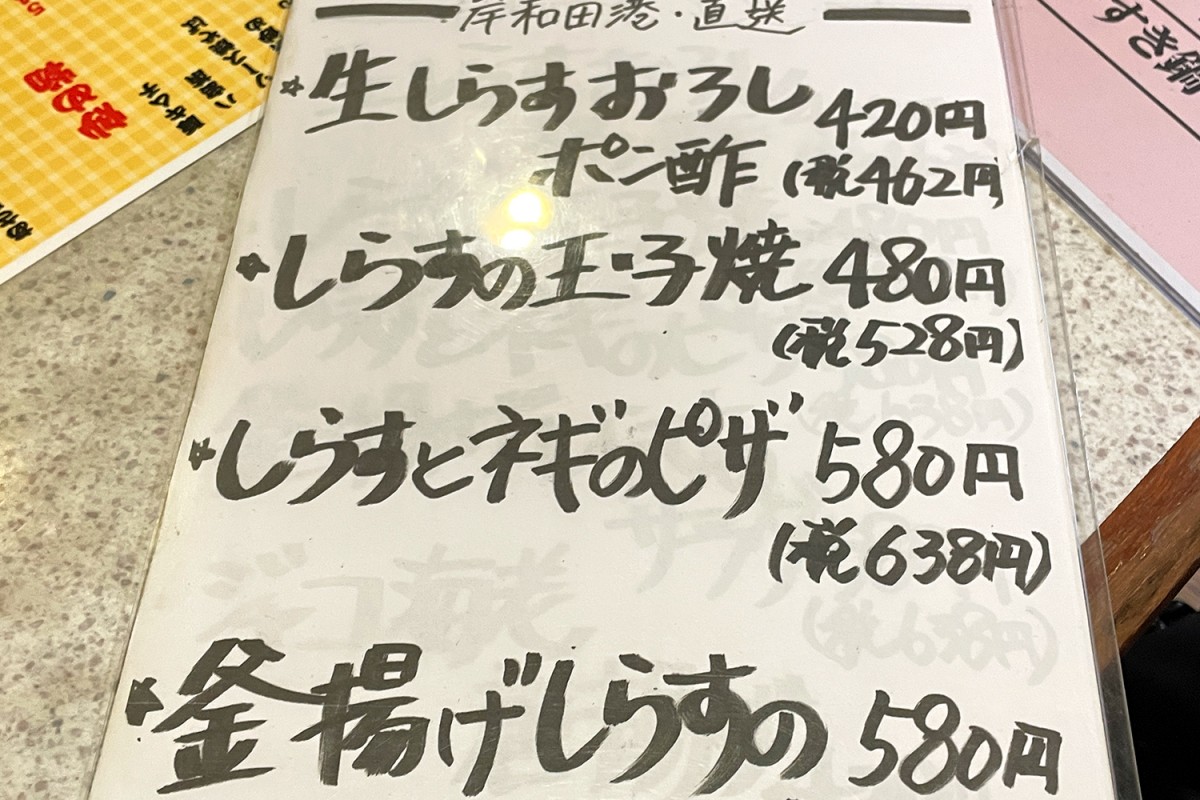 岸和田港・直送
☆生しらすおろし 420円
ポン酢 (税462円
☆しらすの玉子焼 480円
(税528円)
☆しらすとネギのピザ 580円
(税638円)
☆釜揚げしらすの 580円
すき鍋